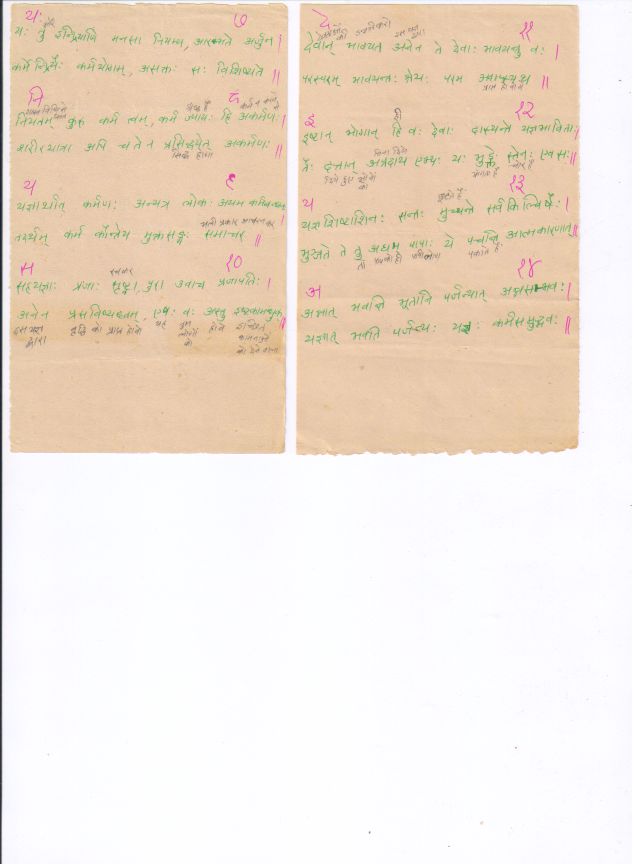 यः ७
यः तु इन्द्रियाणि मनसा नियम्य, आरभते अर्जुन ।
कर्मेन्द्रियैः कर्मयोगम्, असक्तः सः विशिष्यते ॥
नि ८
नियतम् कुरु कर्म त्वम्, कर्म ज्यायः हि अकर्मणः ।
शरीरयात्रा अपि च ते न प्रसिद्ध्येत् अकर्मणः ॥
सिद्ध होगा
य ९
यज्ञार्थात् कर्मणः अन्यत्र लोकः अयम कर्मबन्धनः
भली प्रकार आचरण कर
तदर्थम् कर्म कौन्तेय मुक्तसङ्गः समाचर ॥
स १०
रचकर
सहयज्ञाः प्रजाः सृष्ट्वा, पुरा उवाच प्रजापतिः ।
अनेन प्रसविष्यध्वम्, एषः वः अस्तु इष्टकामधुक्
इस यज्ञ द्वारा वृद्धि को प्राप्त होवो यह तुम लोगों को होवे इच्छित
दे ११
देवान् भावयत अनेन ते देवाः भावयन्तु वः ।
परस्परम् भावयन्तः श्रेयः परम अवाप्स्यथ ॥
प्राप्त होवोगे
इ ही १२
इष्टान् भोगान् हि वः देवाः दास्यन्ते यज्ञभाविताः ।
बिना दिये
तैः दत्तान् अप्रदाय एभ्यः यः भुङ्क्ते स्तेनः एव सः ॥
दिये हुए भोगों को भोगता है चोर है
य १३
छूटते हैं
यज्ञशिष्टाशिनः सन्तः मुच्यन्ते सर्वकिल्विषैः ।
भुञ्जते ते तु अघम् पापाः ये पचन्ति आत्मकारणात् ॥
तो पाप को ही पकाते हैं
अ १४
अन्नात् भवन्ति भूतानि पर्जन्यात् अन्नसम्भवः ।
यज्ञात् भवति पर्जन्यः यज्ञः कर्मसमुद्भवः ॥